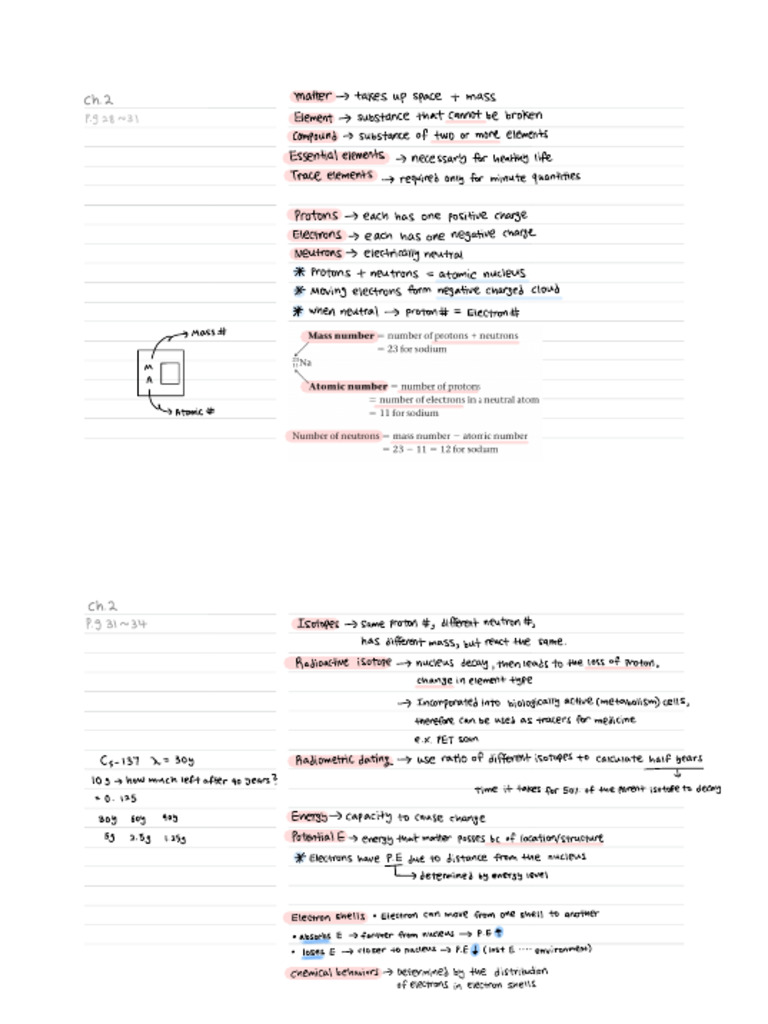 Ch.2
P.g 28~31
matter → takes up space + mass
Element → substance that cannot be broken
Compound → substance of two or more elements
Essential elements → necessary for healthy life
Trace elements → required only for minute quantities
Protons → each has one positive charge
Electrons → each has one negative charge
Neutrons → electrically neutral
* Protons + neutrons = atomic nucleus
* Moving electrons form negative charged cloud
* when neutral → proton# = Electron#
Mass #
M
A
Atomic #
Mass number = number of protons + neutrons
= 23 for sodium
23 11 Na
Atomic number = number of protons
= number of electrons in a neutral atom
= 11 for sodium
Number of neutrons = mass number − atomic number
= 23 − 11 = 12 for sodium
Ch.2
P.g 31~34
Isotopes → same proton #, different neutron #,
has different mass, but react the same.
Radioactive isotope → nucleus decay, then leads to the loss of proton,
change in element type
→ Incorporated into biologically active (metabolism) cells,
therefore can be used as tracers for medicine
e.x. PET scan
Cs-137 λ = 30y
10g → how much left after 90 years?
= 0.125
30y 60y 90y
5g 2.5g 1.25g
Radiometric dating → use ratio of different isotopes to calculate half years
Time it takes for 50% of the parent isotope to decay
Energy → capacity to cause change
Potential E → energy that matter posses bc of location/structure
* Electrons have P.E due to distance from the nucleus
→ determined by energy level
Electron shells • Electron can move from one shell to another
• absorbs E → farther from nucleus → P.E ↑
• loses E → closer to nucleus → P.E ↓ (lost E ···· environment)
chemical behaviors → Determined by the distribution
of electrons in electron shells